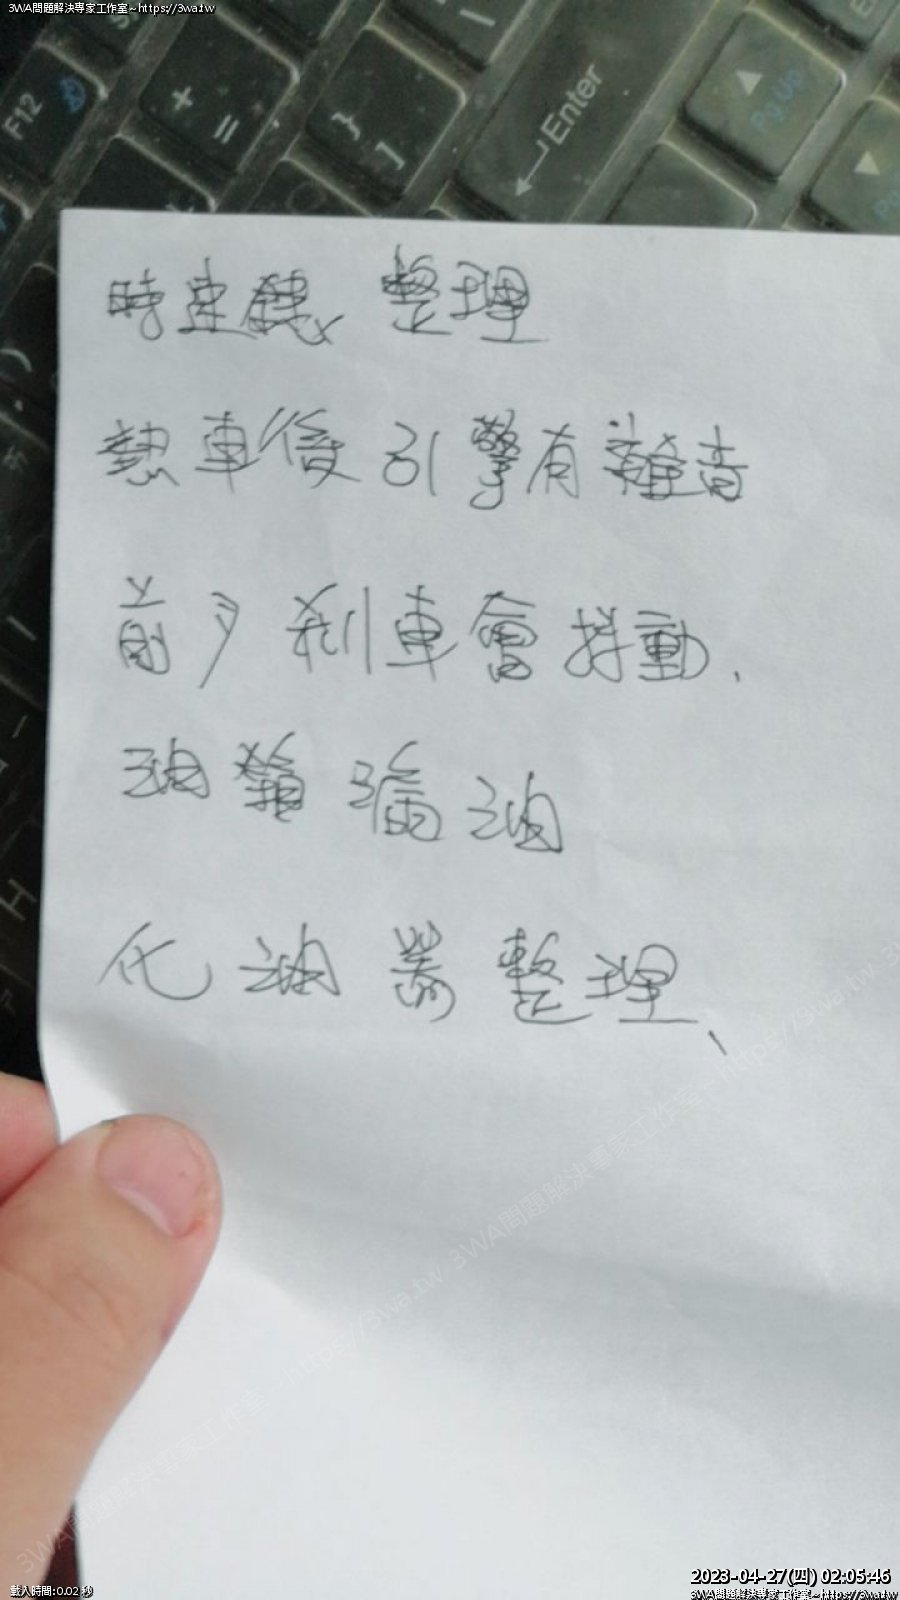 3WA問題解決專家工作室~https://3wa.tw
F12
+
=
}
]
Enter
PgUp
時速錶 整理
熱車後引擎有雜音
前 剎車會抖動、
油鎖漏油
化油器整理、
3WA問題解決專家工作室~https://3wa.tw 3WA問題解決專家工作室~https://3wa.tw 3wa.tw
載入時間:0.02 秒
2023-04-27(四) 02:05:46
3WA問題解決專家工作室~https://3wa.tw